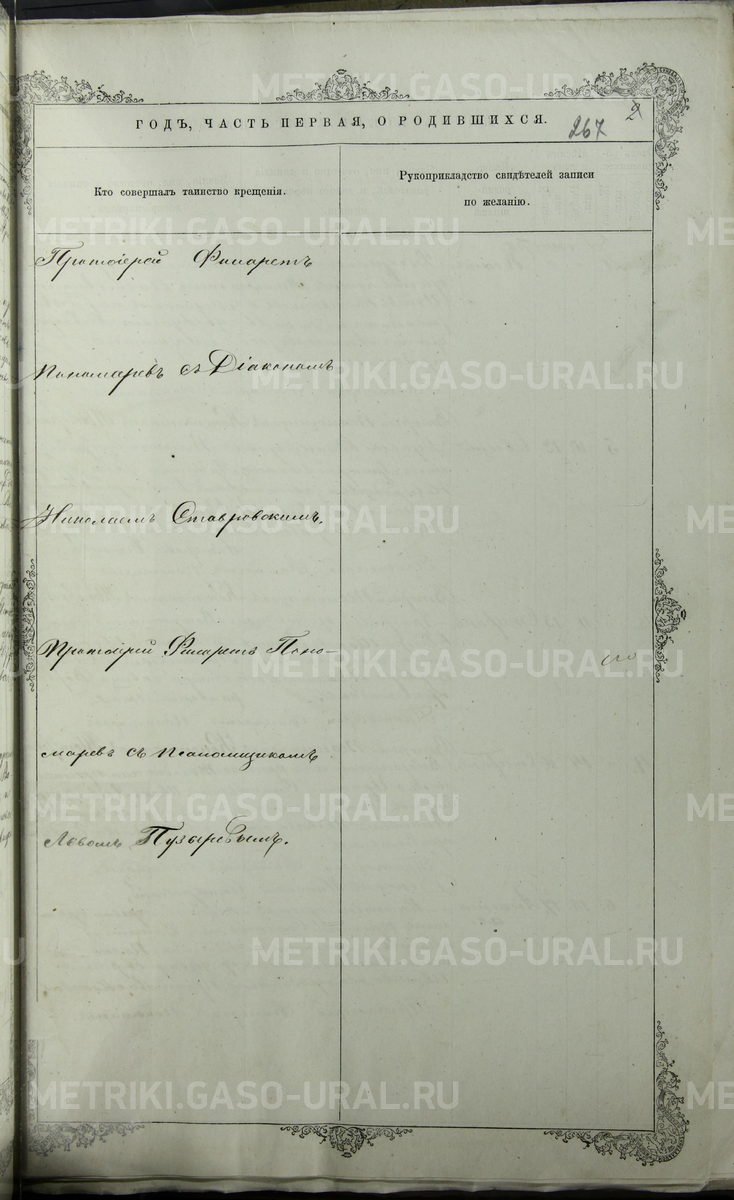 ГОДЪ, ЧАСТЬ ПЕРВАЯ, О РОДИВШИХСЯ.
267
2
Кто совершалъ таинство крещенія.
Рукоприкладство свидѣтелей записи
по желанію.
Протоіерей Филаретъ
Пономаревъ съ Діакономъ
Николаемъ Ставровскимъ.
Протоіерей Филаретъ Поно-
маревъ съ псаломщикомъ
Львомъ Пузыревымъ.
METRIKI.GASO-URAL.RU